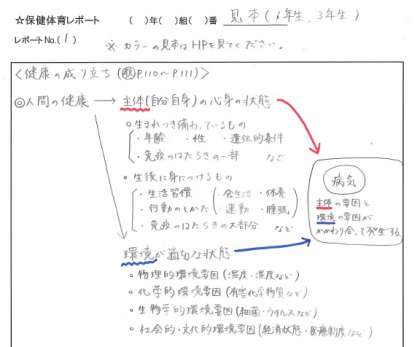 ☆保健体育レポート （ ）年（ ）組（ ）番 見本（ 年生、3年生）
レポートNo.( 1 )
※ カラーの見本はHPを見てください。
＜健康の成り立ち（ P.110〜P.111）＞
◎人間の健康 → 主体(自分自身)の心身の状態
○生まれつき備わっているもの
・年齢 ・性 ・遺伝的素件
・免疫のはたらきの一部 など
○生後に身につけるもの
・生活習慣（食生活・休養
・行動のしかた 運動・睡眠）
・免疫のはたらきの大部分 など
病気
主体の要因と
環境の要因が
かかわり合って発生する
環境が 適な状態
○物理的環境要因（温度・湿度など）
○化学的環境要因（有害化学物質など）
○生物学的環境要因（細菌・ウイルスなど）
○社会的・文化的環境要因（経済状態・医療制度など）